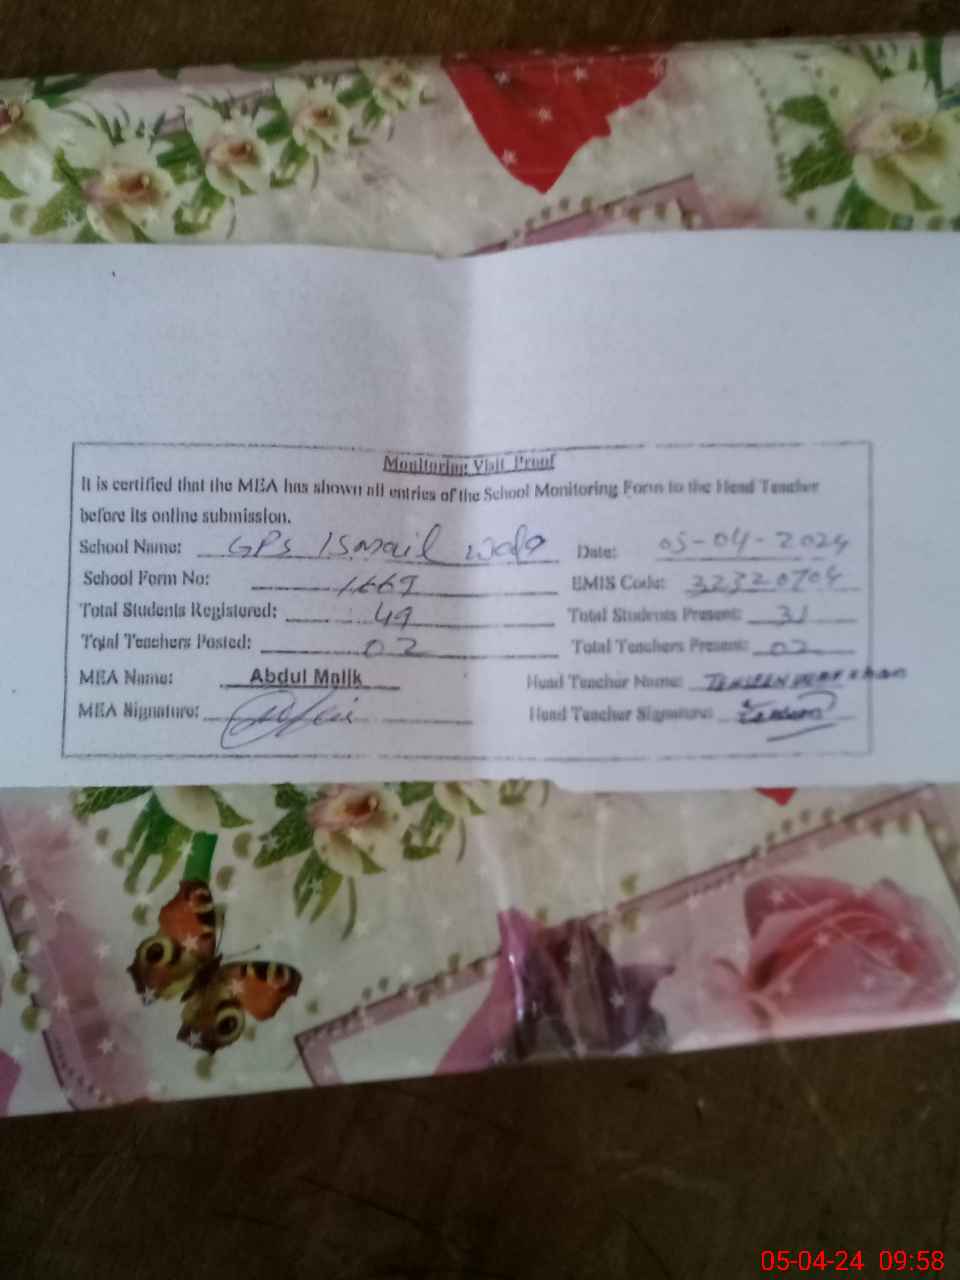 Monitoring Visit Proof
It is certified that the MEA has shown all entries of the School Monitoring Form to the Head Teacher
before its online submission.
School Name: GPS Ismail wala Date: 05-04-2024
School Form No: 1669 EMIS Code: 32320704
Total Students Registered: 49 Total Students Present: 31
Total Teachers Posted: 02 Total Teachers Present: 02
MEA Name: Abdul Malik Head Teacher Name: khan
MEA Signature: Head Teacher Signature:
05-04-24 09:58